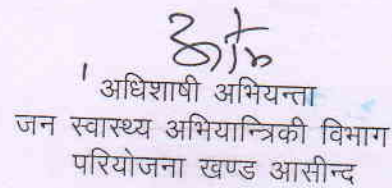 अधिशाषी अभियन्ता
जन स्वास्थ्य अभियान्त्रिकी विभाग
परियोजना खण्ड आसीन्द